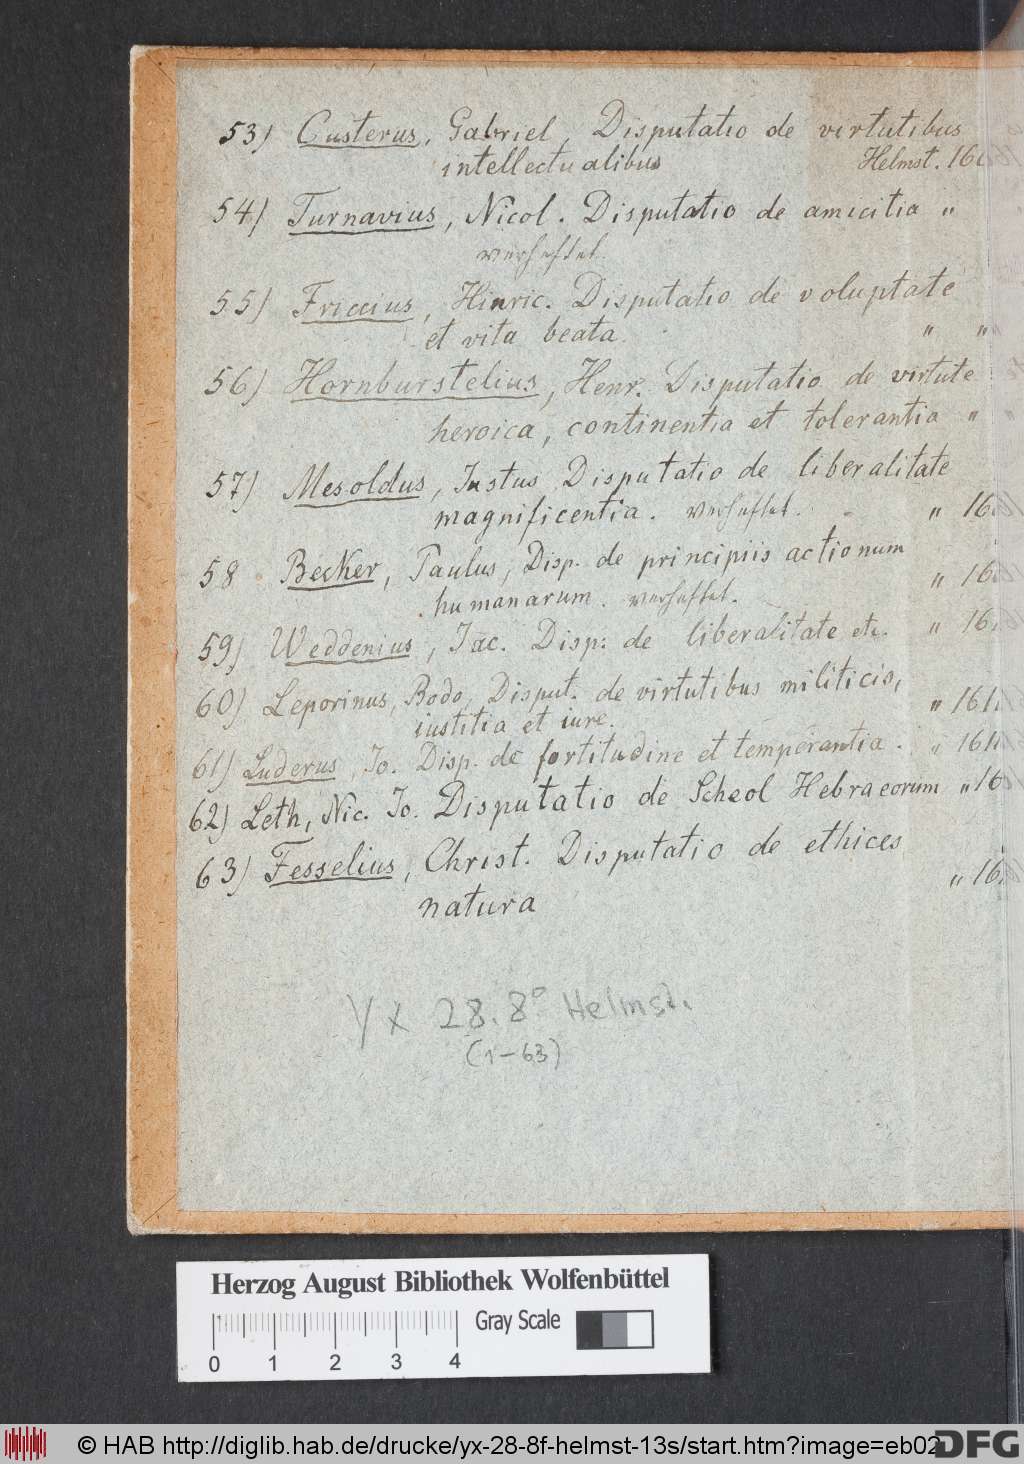 53) Custerus, Gabriel, Disputatio de virtutibus
intellectualibus Helmst. 16
54) Turnavius, Nicol. Disputatio de amicitia "
verheftet.
55) Friccius, Hinric. Disputatio de voluptate
et vita beata. " "
56) Hornburstelius, Henr. Disputatio de virtute
heroica, continentia et tolerantia "
57) Mesoldus, Justus Disputatio de liberalitate
magnificentia. verheftet. " 16
58 Becker, Paulus, Disp. de principiis actionum
humanarum. verheftet. " 16
59) Weddenius, Jac. Disp: de liberalitate etc. " 16
60) Leporinus, Bodo, Disput. de virtutibus militicis,
iustitia et iure. " 161
61) Luderus, Jo. Disp. de fortitudine et temperantia. " 161
62) Leth, Nic. Jo. Disputatio de Scheol Hebraeorum " 16
63) Fesselius, Christ. Disputatio de ethices
natura " 16
Yx 28. 8° Helmst.
(1-63)
Herzog August Bibliothek Wolfenbüttel
Gray Scale
0 1 2 3 4
© HAB http://diglib.hab.de/drucke/yx-28-8f-helmst-13s/start.htm?image=eb02
DFG